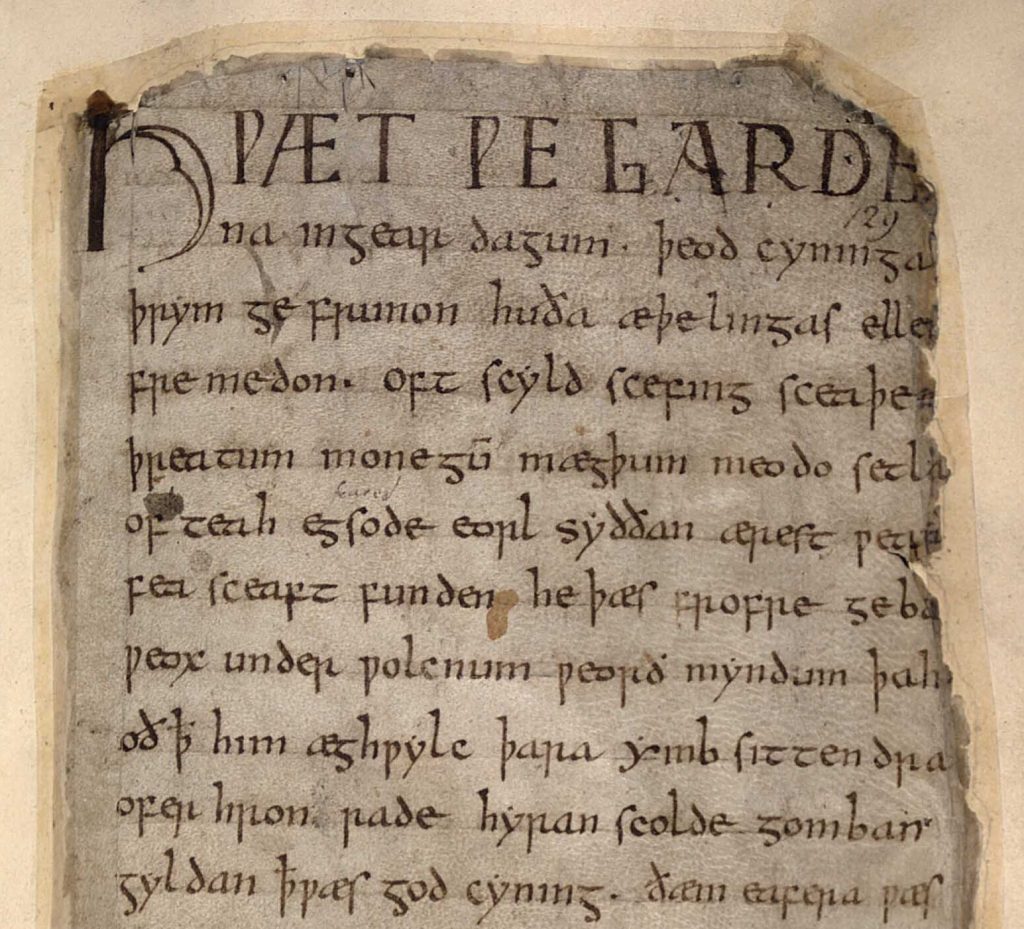 HǷÆT ǷE GARDE
129
na ingear dagum. þeod cyninga
þrym ge frunon huða æþelingas elle
fremedon. oft scyld scefing sceaþe
þreatum monegū mægþum meodo setla
of teah egsode eorl syððan ærest ƿear
fea sceaft funden he þæs frofre geba
ƿeox under ƿolcnum ƿeorð myndum þah
oð ꝥ him æghƿylc þara ymb sittendra
ofer hron rade hyran scolde gomban
gyldan ꝥ ƿæs god cyning. ðæm eafera ƿæs